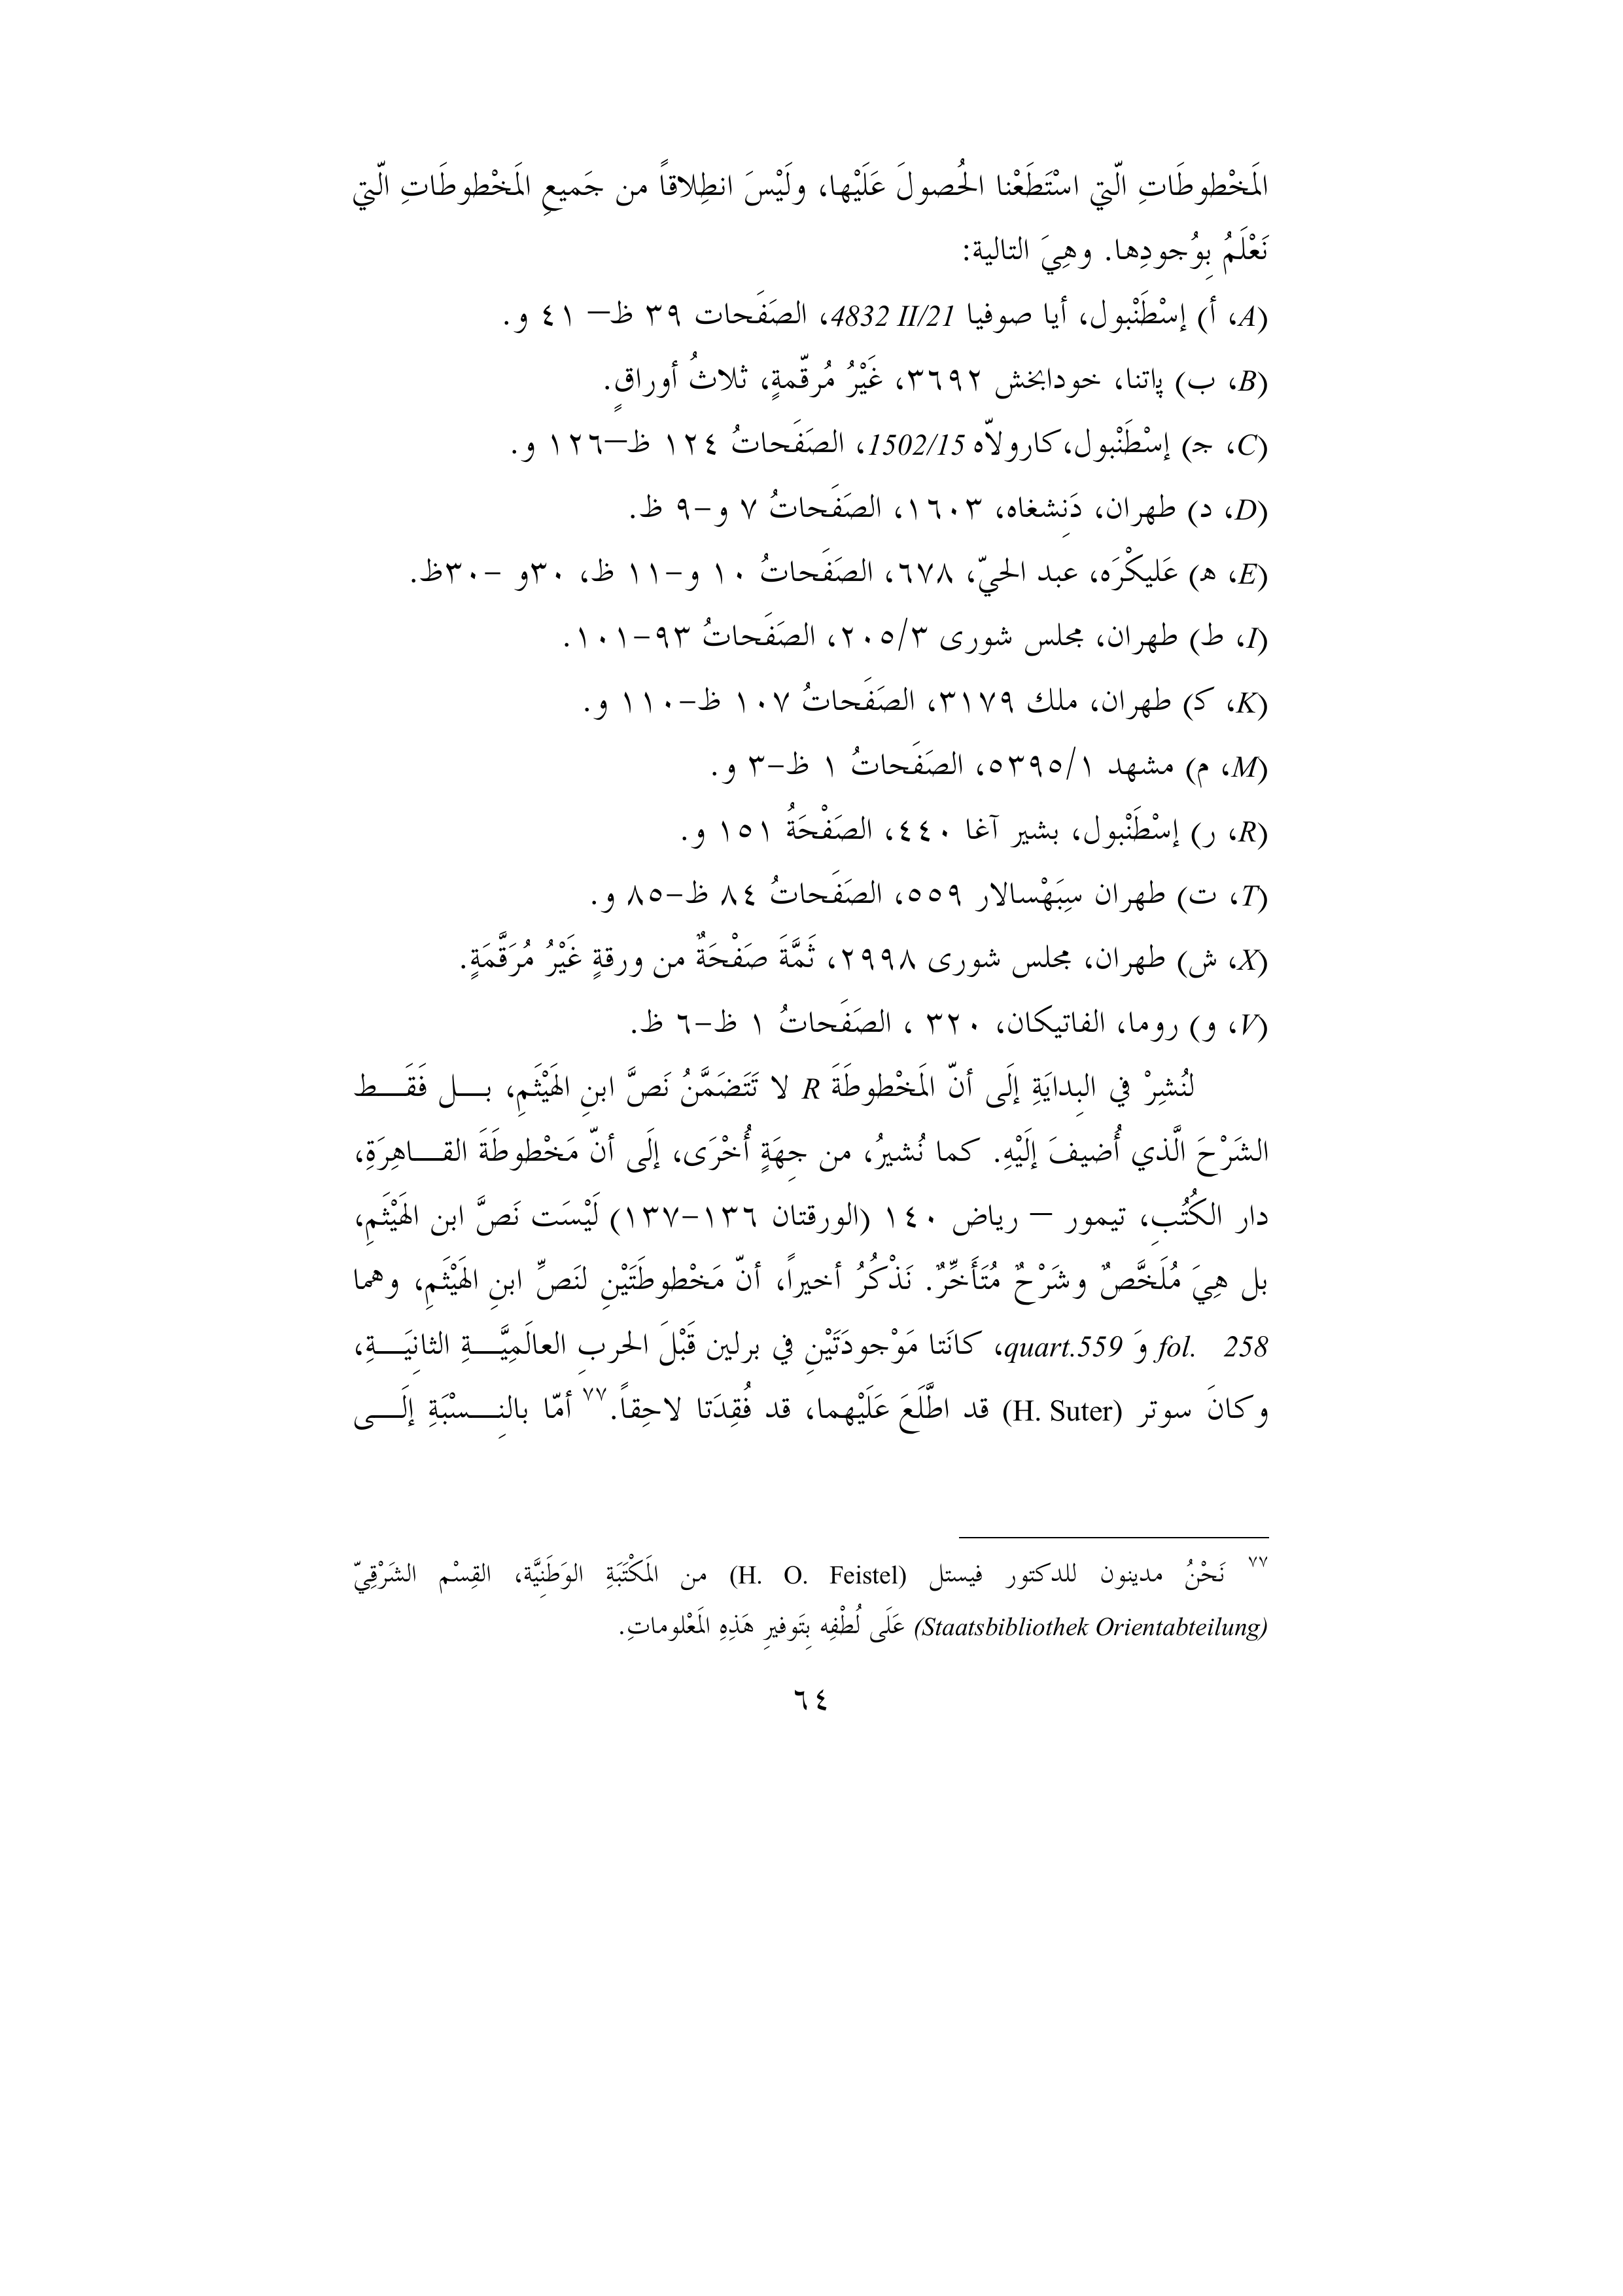 المَخْطوطَاتِ الّتي اسْتَطَعْنا الحُصولَ عَلَيْها، ولَيْسَ انطِلاقاً من جَميعِ المَخْطوطَاتِ الّتي
نَعْلَمُ بِوُجودِها. وهِيَ التالية:
(A، أ) إسْطَنْبول، أيا صوفيا 4832 II/21، الصَفَحات ٣٩ ظ– ٤١ و.
(B، ب) پاتنا، خودابخش ٣٦٩٢، غَيْرُ مُرقّمةٍ، ثلاثُ أوراقٍ.
(C، جـ) إسْطَنْبول،كارولاّه 1502/15، الصَفَحاتُ ١٢٤ ظ–١٢٦ و.
(D، د) طهران، دَنِشغاه، ١٦٠٣، الصَفَحاتُ ٧ و-٩ ظ.
(E، هـ) عَليكْرَه، عبد الحيّ، ٦٧٨، الصَفَحاتُ ١٠ و-١١ ظ، ٣٠و -٣٠ظ.
(I، ط) طهران، مجلس شورى ٢٠٥/٣، الصَفَحاتُ ٩٣-١٠١.
(K، كـ) طهران، ملك ٣١٧٩، الصَفَحاتُ ١٠٧ ظ-١١٠ و.
(M، م) مشهد ٥٣٩٥/١، الصَفَحاتُ ١ ظ-٣ و.
(R، ر) إسْطَنْبول، بشير آغا ٤٤٠، الصَفْحَةُ ١٥١ و.
(T، ت) طهران سِبَهْسالار ٥٥٩، الصَفَحاتُ ٨٤ ظ-٨٥ و.
(X، ش) طهران، مجلس شورى ٢٩٩٨، ثَمَّةَ صَفْحَةٌ من ورقةٍ غَيْرُ مُرَقَّمَةٍ.
(V، و) روما، الفاتيكان، ٣٢٠ ، الصَفَحاتُ ١ ظ-٦ ظ.
لنُشِرْ في البِدايَةِ إلَى أنّ المَخْطوطَةَ R لا تَتَضَمَّنُ نَصَّ ابنِ الهَيْثَمِ، بـل فَقَـط
الشَرْحَ الَّذي أُضيفَ إلَيْهِ. كما نُشيرُ، من جِهَةٍ أُخْرَى، إلَى أنّ مَخْطوطَةَ القـاهِرَةِ،
دار الكُتُبِ، تيمور – رياض ١٤٠ (الورقتان ١٣٦-١٣٧) لَيْسَت نَصَّ ابن الهَيْثَمِ،
بل هِيَ مُلَخَّصٌ وشَرْحٌ مُتَأَخِّرٌ. نَذْكُرُ أخيراً، أنّ مَخْطوطَتَيْنِ لنَصِّ ابنِ الهَيْثَمِ، وهما
fol. 258 وَ quart.559، كانَتا مَوْجودَتَيْنِ في برلين قَبْلَ الحربِ العالَمِيَّـةِ الثانِيَـةِ،
وكانَ سوتر (H. Suter) قد اطَّلَعَ عَلَيْهما، قد فُقِدَتا لاحِقاً.٧٧ أمّا بالنِـسْبَةِ إلَـى
٧٧ نَحْنُ مدينون للدكتور فيستل (H. O. Feistel) من المَكْتَبَةِ الوَطَنِيَّة، القِسْم الشَرْقِيّ
(Staatsbibliothek Orientabteilung) عَلَى لُطْفِه بِتَوفيرِ هَذِهِ المَعْلوماتِ.
٦٤